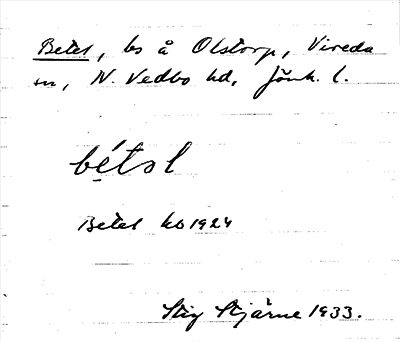 Betel, bs å Olstorp, Vireda
sn, N. Vedbo hd, Jönk. l.
bétəl
Betel kb 1924
Stig Stjärne 1933.